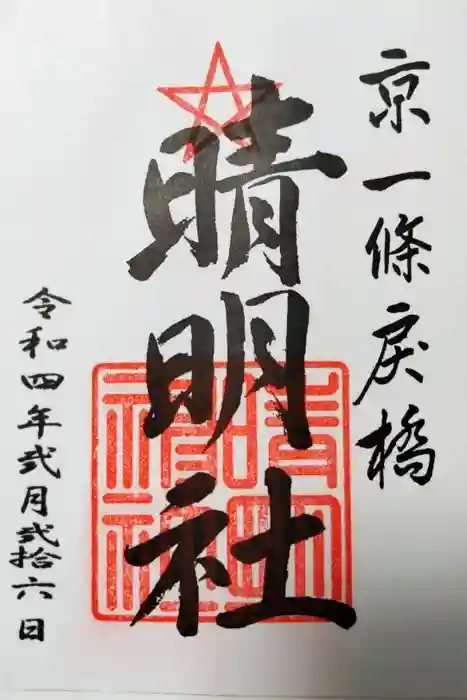 京一條戻橋
晴明社
令和四年弐月弐拾六日